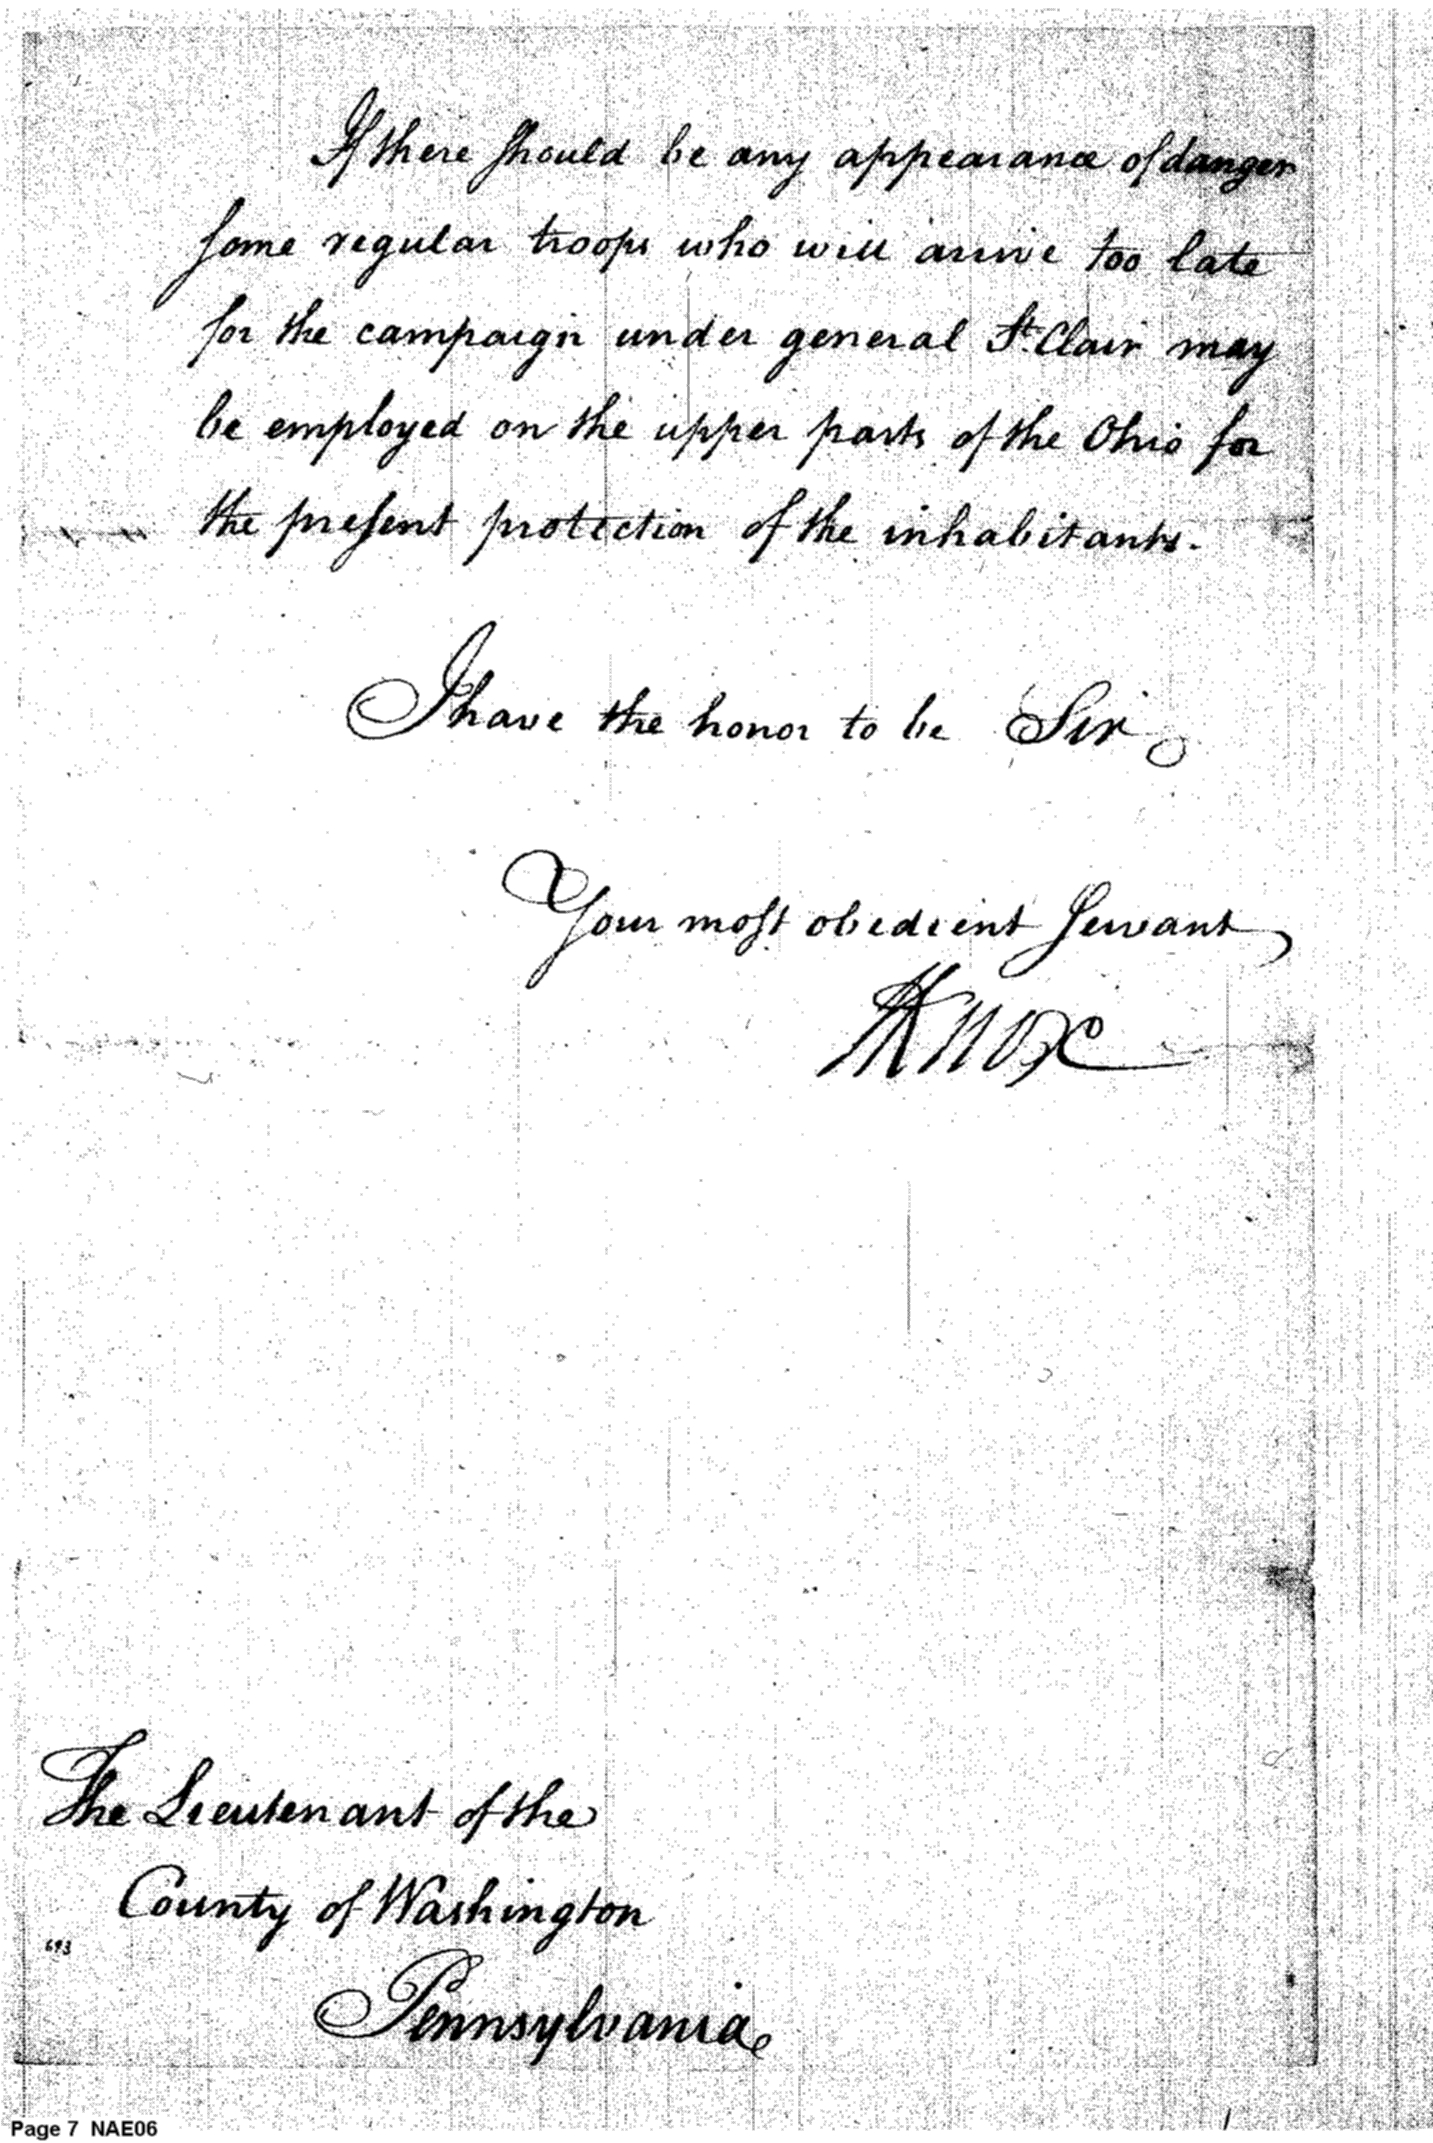 If there should be any appearance of danger
some regular troops who will arrive too late
for the campaign under general St. Clair may
be employed on the upper parts of the Ohio for
the present protection of the inhabitants.
I have the honor to be Sir
Your most obedient servant
HKnox
The Lieutenant of the
County of Washington
693
Pennsylvania
Page 7 NAE06